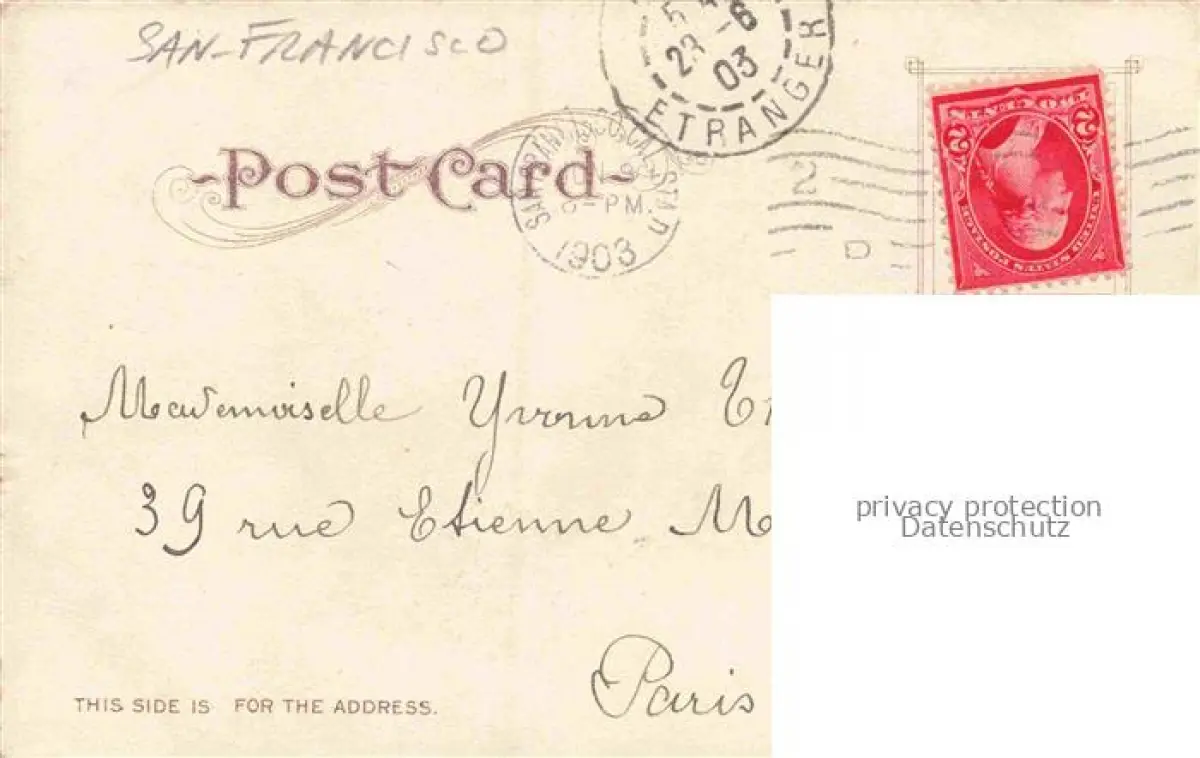 SAN-FRANCISCO
23 -6
03
ETRANGER
Post Card
SAN FRANCISCO, CAL. STA. D.
6-PM
1903
2
D
2 2
UNITED STATES POSTAGE
Mademoiselle Yvonne
39 rue Etienne M
privacy protection
Datenschutz
Paris
THIS SIDE IS FOR THE ADDRESS.